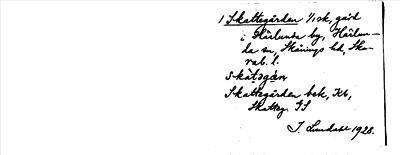 1 Skattegården 1/1 sk, gård
i Härlunda by, Härlun-
da sn, Skånings hd, Ska-
rab. l.
skat̀agán
Skattegården bek, Kb,
Skatteg. GS
I. Lundahl 1928.